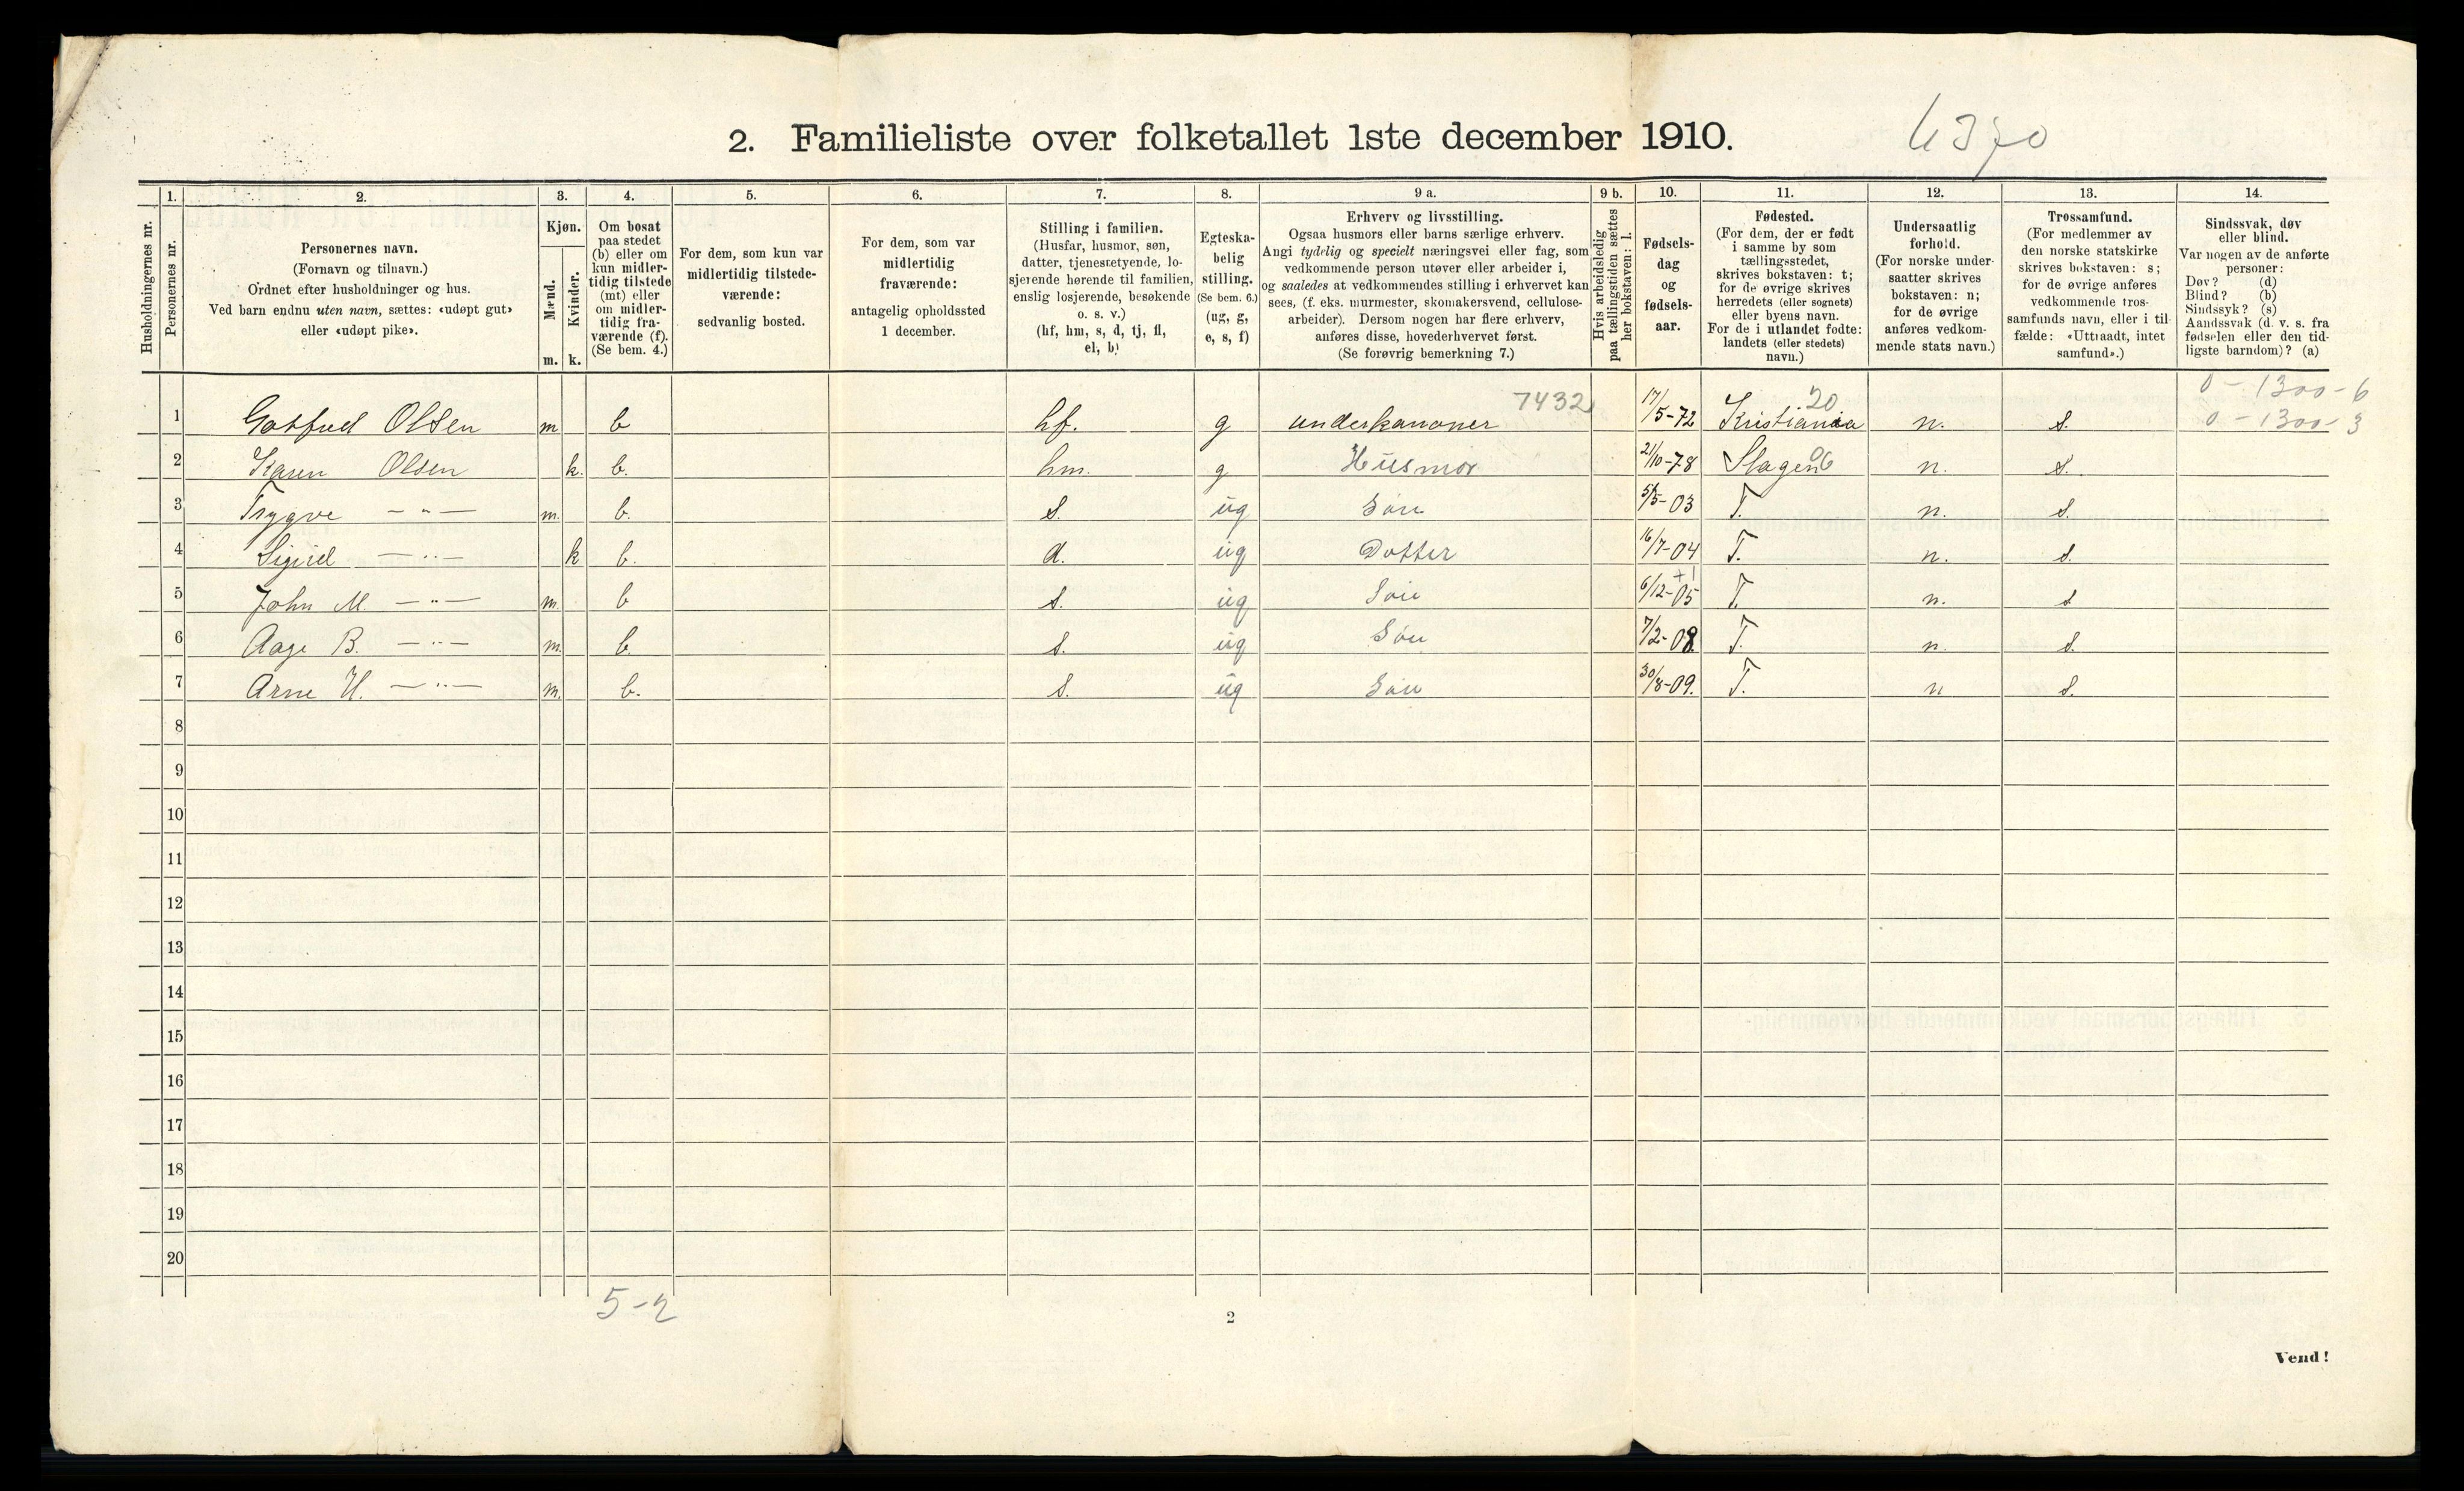 2. Familieliste over folketallet 1ste december 1910.
Husholdningernes nr.
1.
Personernes nr.
2.
Personernes navn.
(Fornavn og tilnavn.)
Ordnet efter husholdninger og hus.
Ved barn endnu uten navn, sættes: «udøpt gut»
eller «udøpt pike».
3.
Kjøn.
Mænd.
m.
Kvinder.
k.
4.
Om bosat
paa stedet
(b) eller om
kun midler-
tidig tilstede
(mt) eller
om midler-
tidig fra-
værende (f).
(Se bem. 4.)
5.
For dem, som kun var
midlertidig tilstede-
værende:
sedvanlig bosted.
6.
For dem, som var
midlertidig
fraværende:
antagelig opholdssted
1 december.
7.
Stilling i familien.
(Husfar, husmor, søn,
datter, tjenestetyende, lo-
sjerende hørende til familien,
enslig losjerende, besøkende
o. s. v.)
(hf, hm, s, d, tj, fl,
el, b)
8.
Egteska-
belig
stilling.
(Se bem. 6.)
(ug, g,
e, s, f)
9 a.
Erhverv og livsstilling.
Ogsaa husmors eller barns særlige erhverv.
Angi tydelig og specielt næringsvei eller fag, som
vedkommende person utøver eller arbeider i,
og saaledes at vedkommendes stilling i erhvervet kan
sees, (f. eks. murmester, skomakersvend, cellulose-
arbeider). Dersom nogen har flere erhverv,
anføres disse, hovederhvervet først.
(Se forøvrig bemerkning 7.)
9 b.
Hvis arbeidsledig
paa tællingstiden sættes
her bokstaven: l.
10.
Fødsels-
dag
og
fødsels-
aar.
11.
Fødested.
(For dem, der er født
i samme by som
tællingsstedet,
skrives bokstaven: t;
for de øvrige skrives
herredets (eller sognets)
eller byens navn.
For de i utlandet fødte:
landets (eller stedets)
navn.)
12.
Undersaatlig
forhold.
(For norske under-
saatter skrives
bokstaven: n;
for de øvrige
anføres vedkom-
mende stats navn.)
13.
Trossamfund.
(For medlemmer av
den norske statskirke
skrives bokstaven: s;
for de øvrige anføres
vedkommende tros-
samfunds navn, eller i til-
fælde: «Uttraadt, intet
samfund».)
14.
Sindssvak, døv
eller blind.
Var nogen av de anførte
personer:
Døv? (d)
Blind? (b)
Sindssyk? (s)
Aandssvak (d. v. s. fra
fødselen eller den tid-
ligste barndom)? (a)
0 - 1300 - 6
1 Gotfred Olsen m b hf. g underkanoner 7432 17/5-72 Kristiania 20 n. s. 0 - 1300 - 3
2 Karen Olsen k. b. hm. g Husmor 21/10-78 Slagen 06 n. s.
3 Trygve — " — m. b. s. ug Søn 5/5-03 T. n. s.
4 Sigrid — " — k b. d. ug Dotter 16/7-04 T. n. s.
5 John M. — " — m. b s. ug Søn 6/12-05 +1 T. n. s
6 Aage B. — " — m. b. s. ug Søn 7/2-08. T. n. s.
7 Arne H. — " — m. b. s. ug Søn 30/8-09. T. n s.
8
9
10
11
12
13
14
15
16
17
18
19
20
5-2
2
Vend!